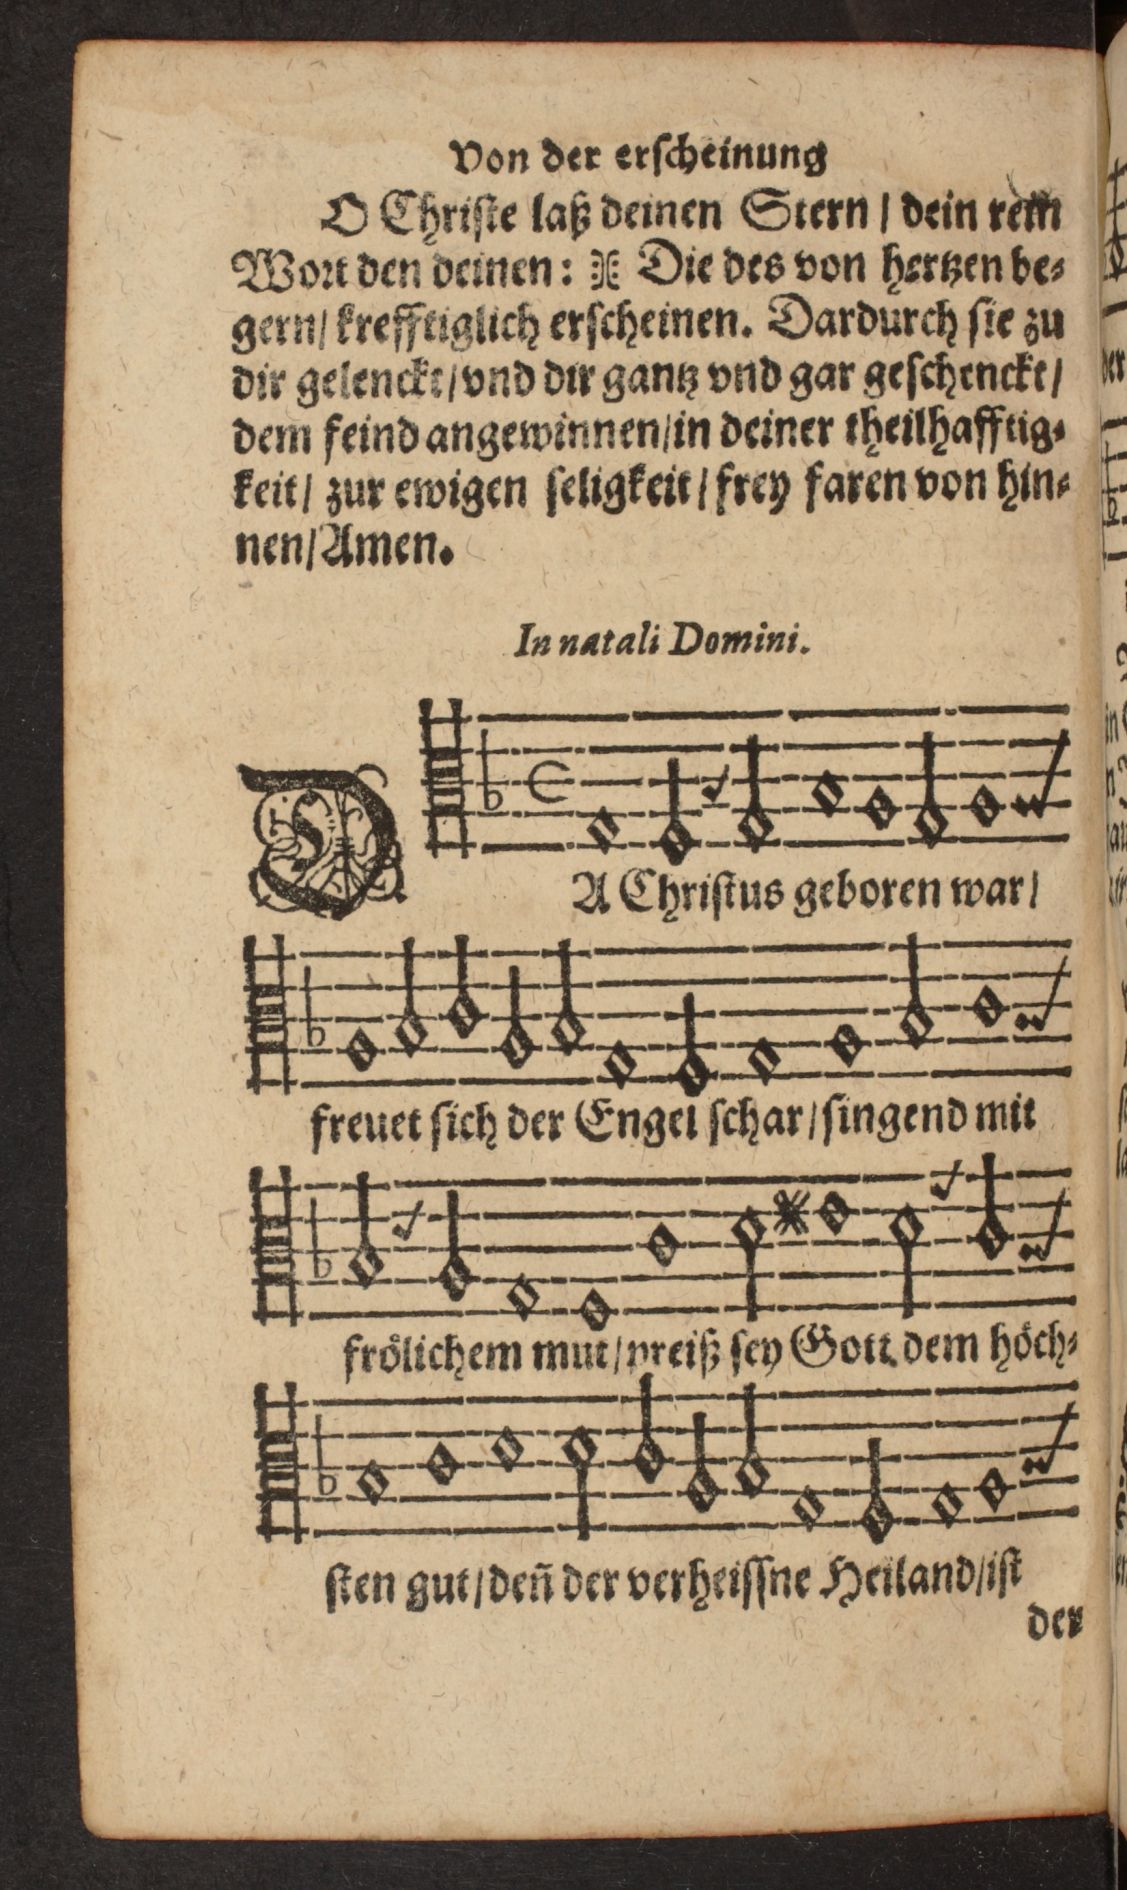 Von der erscheinung
O Christe laß deinen Stern / dein rein
Wort den deinen: Die des von hertzen be⸗
gern/ krefftiglich erscheinen. Dardurch sie zu
dir gelenckt/ vnd dir gantz vnd gar geschenckt/
dem feind angewinnen/ in deiner theilhafftig⸗
keit/ zur ewigen seligkeit/ frey faren von hin⸗
nen/ Amen.
In natali Domini.
DA Christus geboren war/
freuet sich der Engel schar/ singend mit
frölichem mut/ preiß sey Gott dem höch⸗
sten gut/ deñ der verheissne Heiland/ ist
der